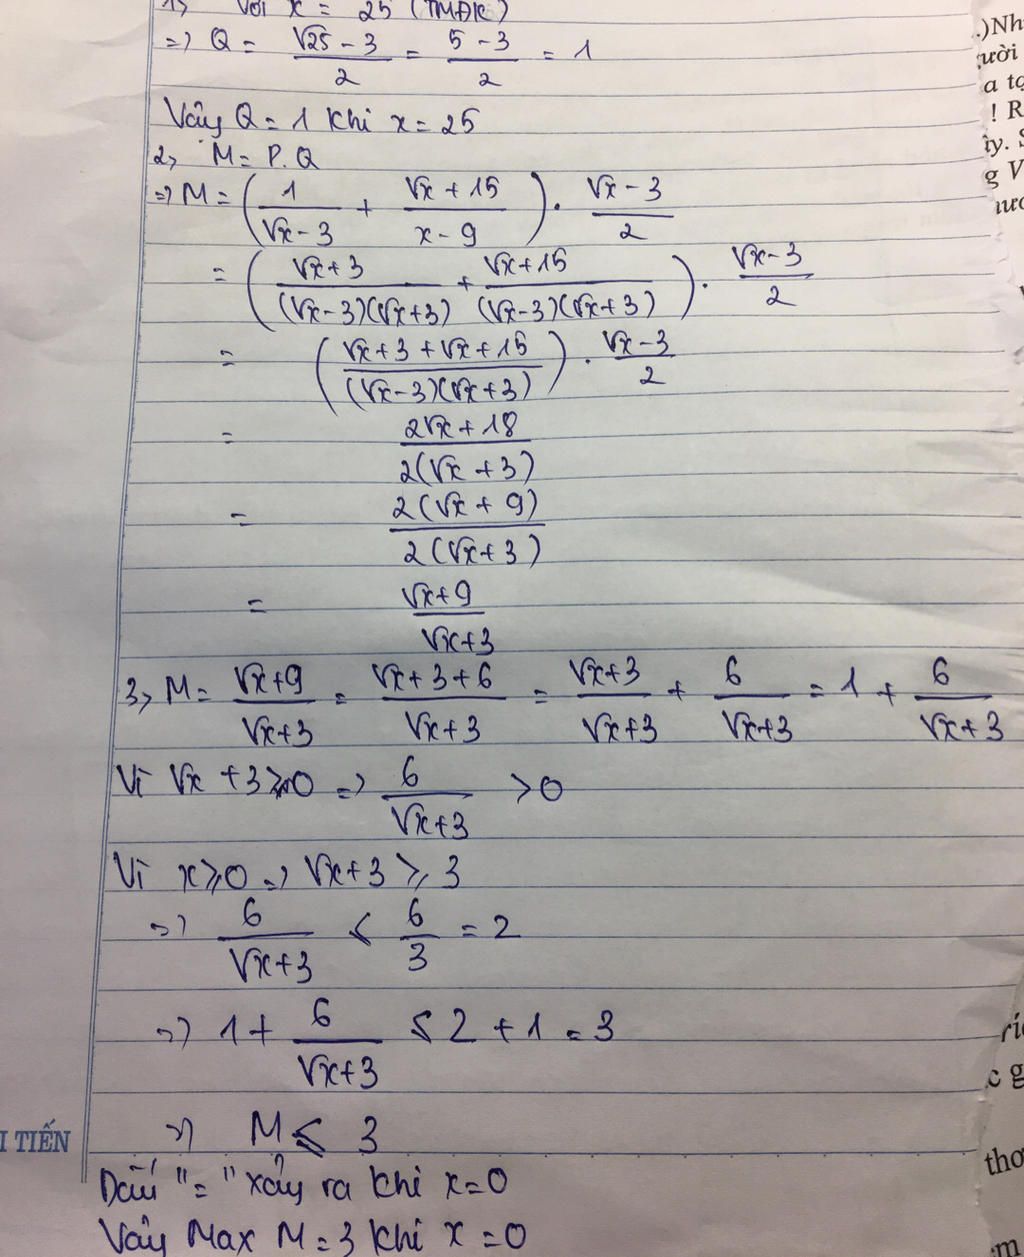 1, Với x = 25 (TMĐK)
=> Q = (√25 - 3)/2 = (5 - 3)/2 = 1
Vậy Q = 1 khi x = 25
2, M = P.Q
=> M = (1/(√x - 3) + (√x + 15)/(x - 9)) . (√x - 3)/2
= ((√x + 3)/((√x - 3)(√x + 3)) + (√x + 15)/((√x - 3)(√x + 3))) . (√x - 3)/2
= ((√x + 3 + √x + 15)/((√x - 3)(√x + 3))) . (√x - 3)/2
= (2√x + 18)/(2(√x + 3))
= (2(√x + 9))/(2(√x + 3))
= (√x + 9)/(√x + 3)
3, M = (√x + 9)/(√x + 3) = (√x + 3 + 6)/(√x + 3) = (√x + 3)/(√x + 3) + 6/(√x + 3) = 1 + 6/(√x + 3)
Vì √x + 3 ≥ 0 => 6/(√x + 3) > 0
Vì x ≥ 0 => √x + 3 ≥ 3
=> 6/(√x + 3) ≤ 6/3 = 2
=> 1 + 6/(√x + 3) ≤ 2 + 1 = 3
=> M ≤ 3
Dấu "=" xảy ra khi x = 0
Vậy Max M = 3 khi x = 0
TIẾN
.)Nh
ười
a tọ
! R
ấy. S
g V
ươ
c g
thơ